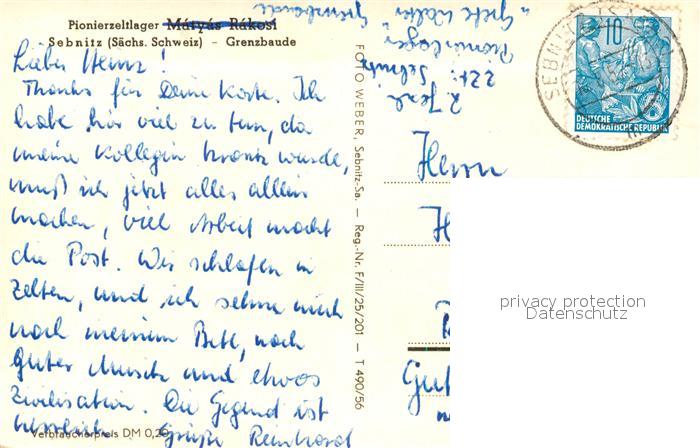 Pionierzeltlager Mátyás Rákosi
Sebnitz (Sächs. Schweiz) - Grenzbaude
Lieber Heinz!
Thanks für Deine Karte. Ich
habe hier viel zu tun, da
meine Kollegin krank wurde,
muß ich jetzt alles allein
machen, viel Arbeit macht
die Post. Wir schlafen in
Zelten, und ich sehne mich
nach meinem Bett, nach
guter Musik und etwas
Zivilisation. Die Gegend ist
herrlich. Grüße Reinhard
Verbraucherpreis DM 0,20
FOTO WEBER, Sebnitz-Sa. — Reg.-Nr. F/III/25/201 — T 490/56
z. Zt. Sebnitz
Pionierlager
"Grete Walter"
Grenzbaude
SEBNITZ
10
DEUTSCHE
DEMOKRATISCHE REPUBLIK
Herrn
H
Gut
privacy protection
Datenschutz